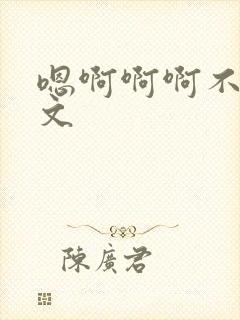 嗯啊啊啊不
文
陳廣君